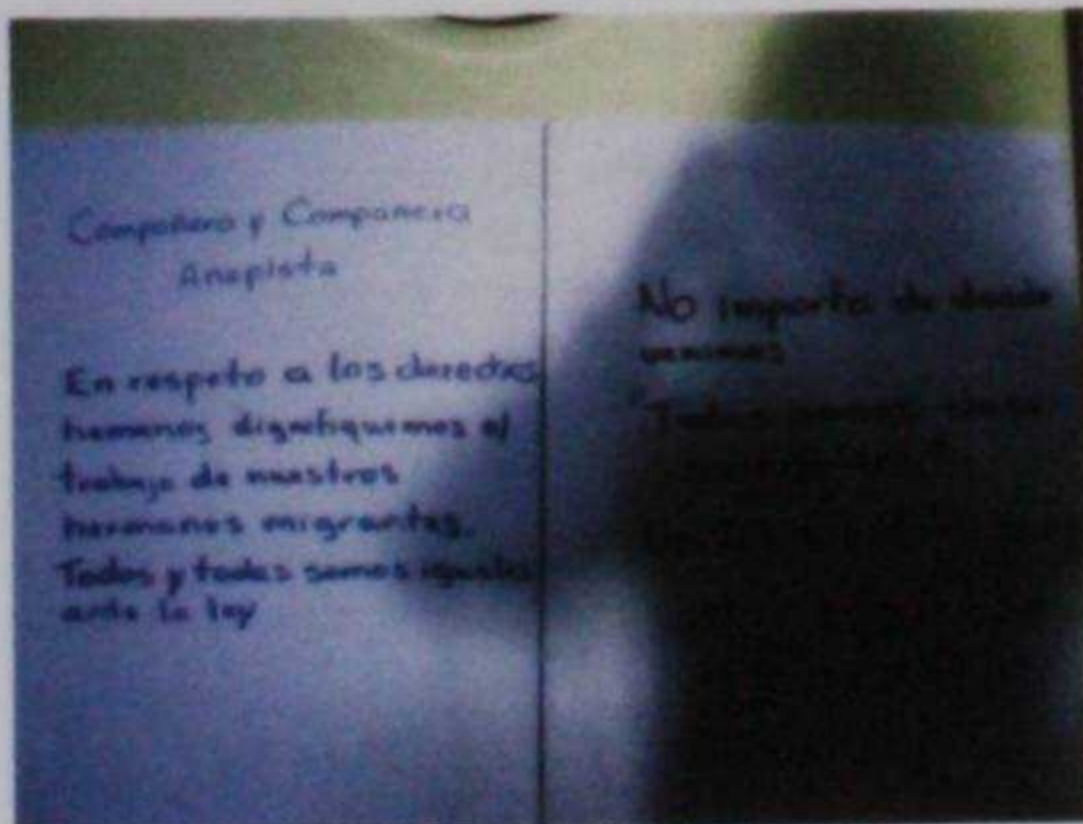 Compañero y Compañera
Anepista
En respeto a los derechos
humanos dignifiquemos el
trabajo de nuestros
hermanos migrantes.
Todos y todas somos iguales
ante la ley
No importa de donde
venimos